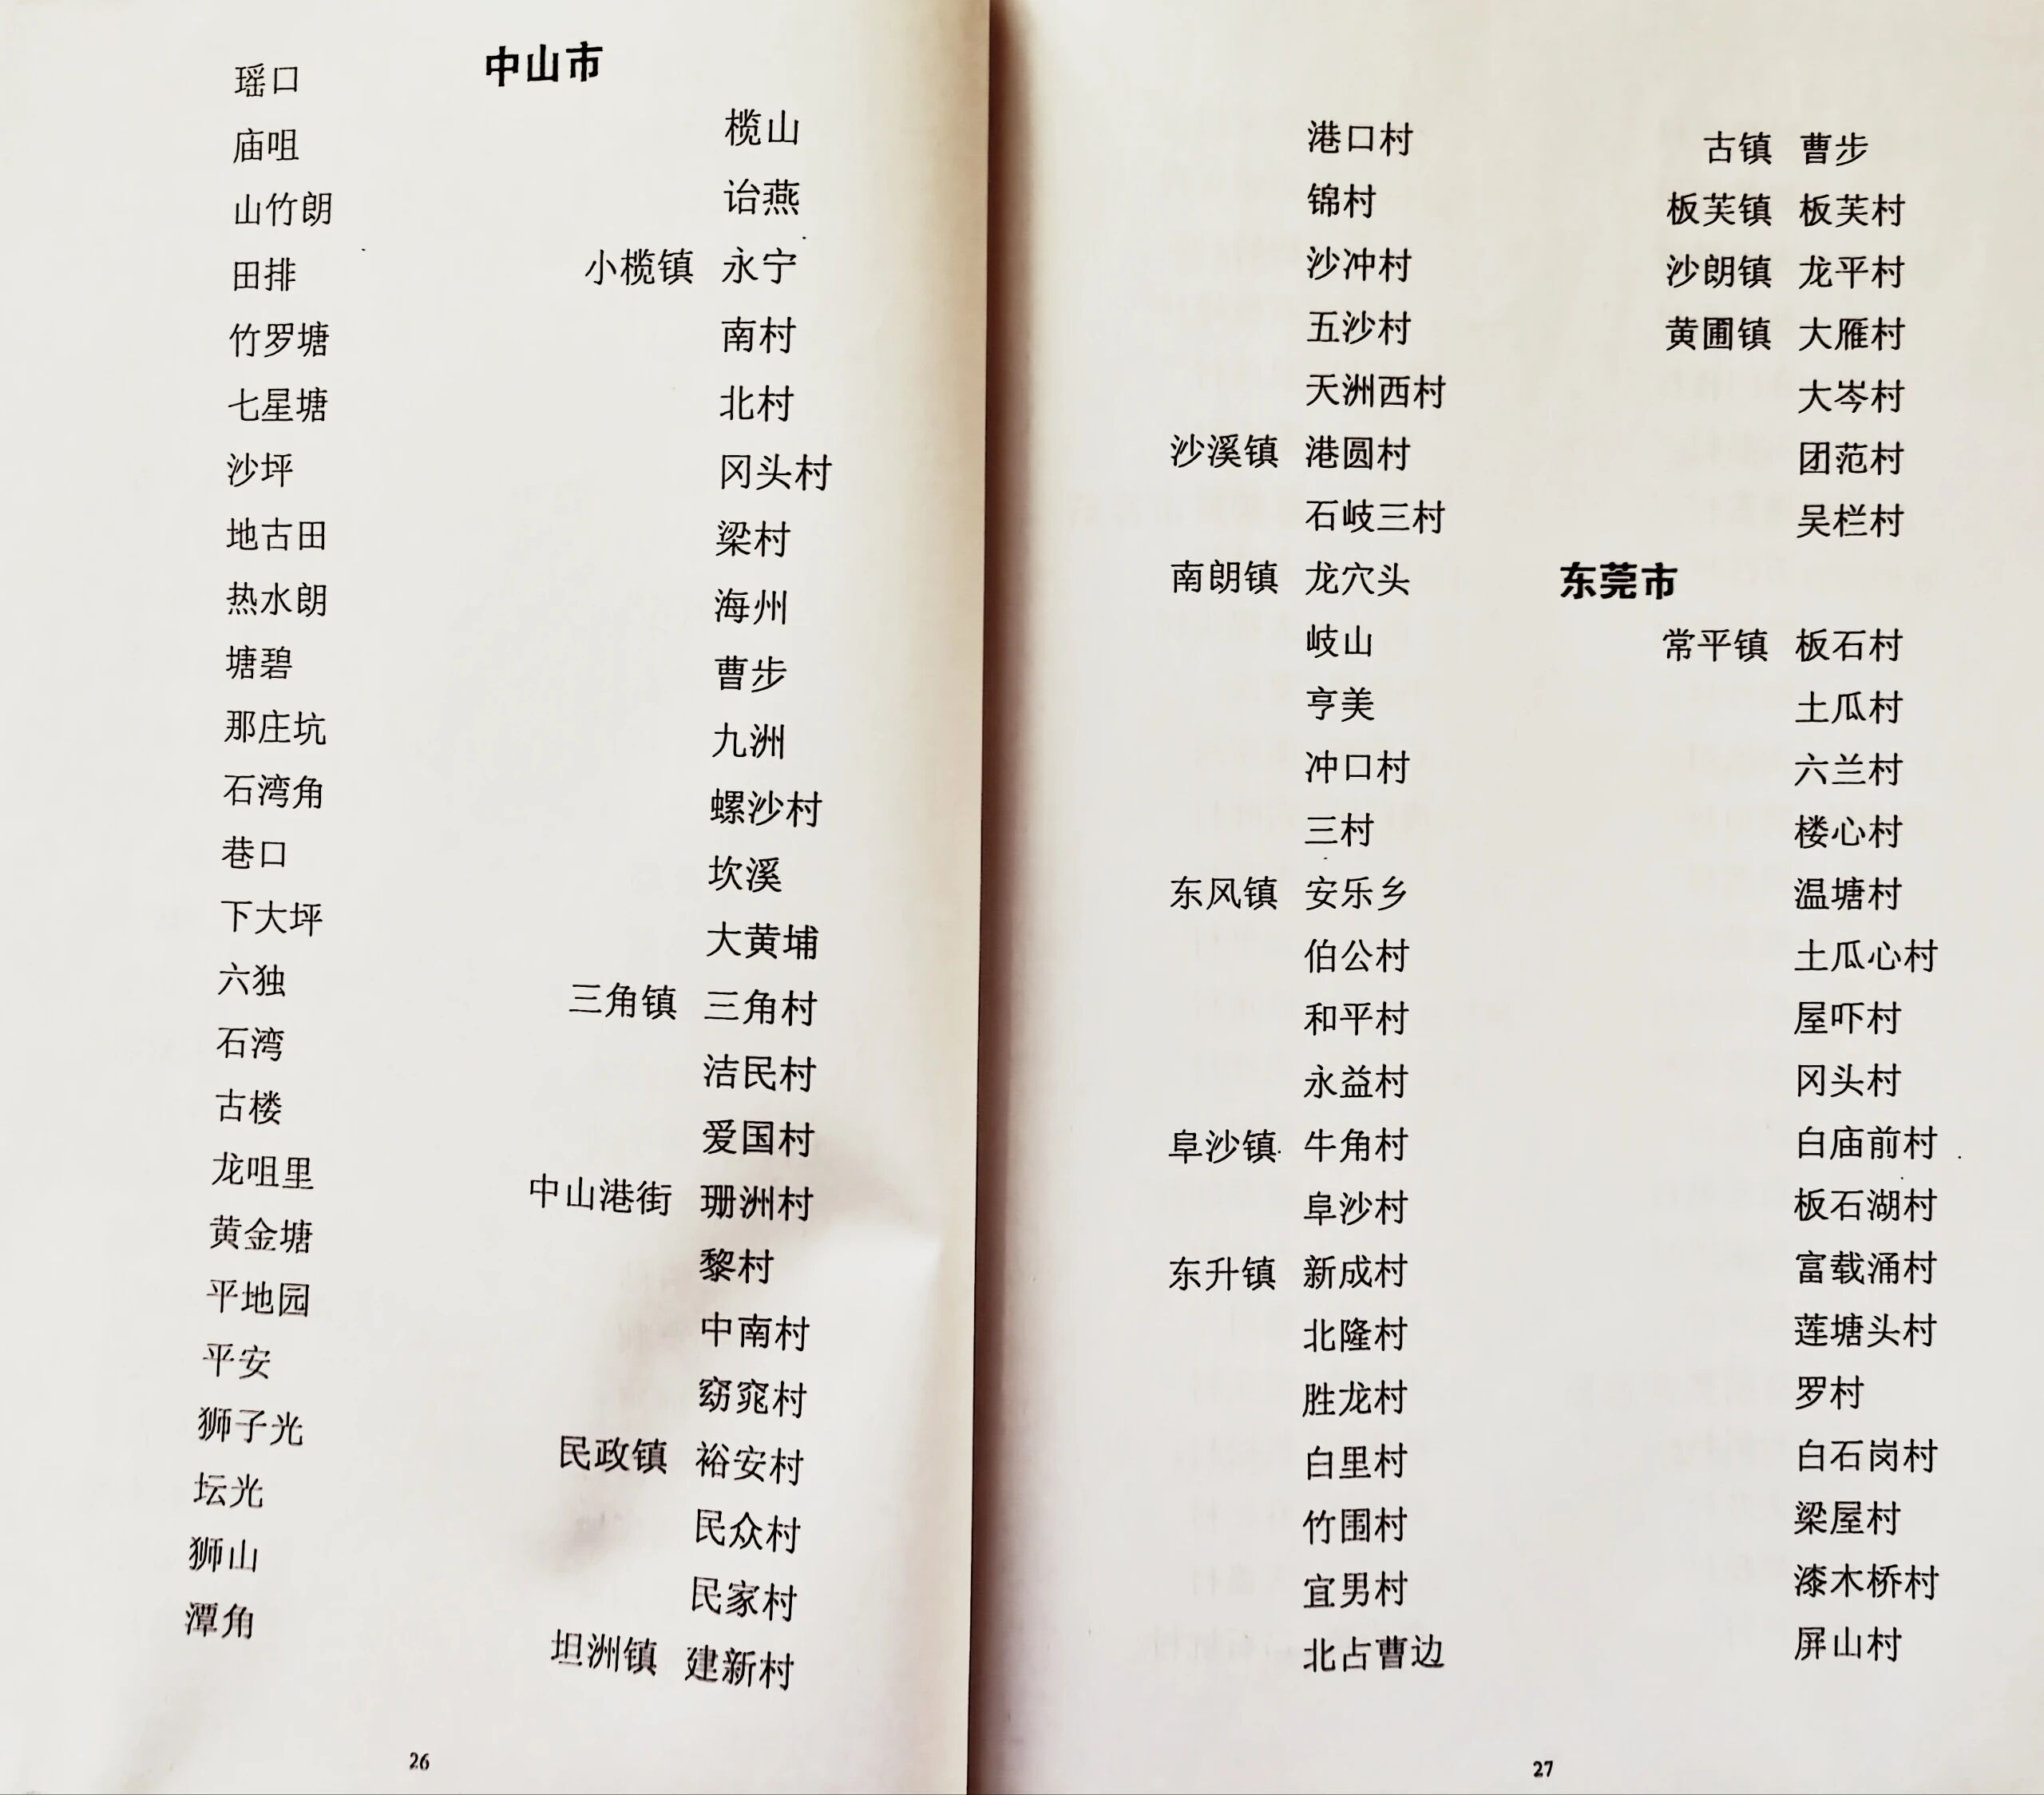 瑶口
庙咀
山竹朗
田排
竹罗塘
七星塘
沙坪
地古田
热水朗
塘碧
那庄坑
石湾角
巷口
下大坪
六独
石湾
古楼
龙咀里
黄金塘
平地园
平安
狮子光
坛光
狮山
潭角
中山市
榄山
诒燕
小榄镇 永宁
南村
北村
冈头村
梁村
海州
曹步
九洲
螺沙村
坎溪
大黄埔
三角镇 三角村
洁民村
爱国村
中山港街 珊洲村
黎村
中南村
窈窕村
民政镇 裕安村
民众村
民家村
坦洲镇 建新村
26
港口村
锦村
沙冲村
五沙村
天洲西村
沙溪镇 港圆村
石岐三村
南朗镇 龙穴头
岐山
亨美
冲口村
三村
东风镇 安乐乡
伯公村
和平村
永益村
阜沙镇 牛角村
阜沙村
东升镇 新成村
北隆村
胜龙村
白里村
竹围村
宜男村
北占曹边
古镇 曹步
板芙镇 板芙村
沙朗镇 龙平村
黄圃镇 大雁村
大岑村
团范村
吴栏村
东莞市
常平镇 板石村
土瓜村
六兰村
楼心村
温塘村
土瓜心村
屋吓村
冈头村
白庙前村
板石湖村
富载涌村
莲塘头村
罗村
白石岗村
梁屋村
漆木桥村
屏山村
27